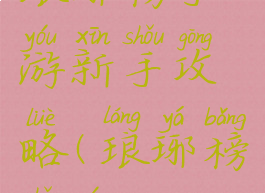 yóu xīn shǒu gōng
游新手攻
lüè láng yá bǎng
略(琅琊榜